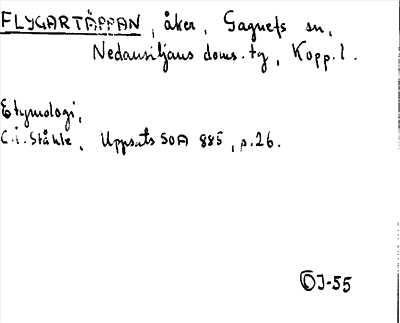 FLYGARTÄPPAN, åker, Gagnefs sn,
Nedansiljans doms.tg, Kopp.l.
Etymologi,
C.I. Ståhle, Uppsats SOA 885, s.26.
OJ-55